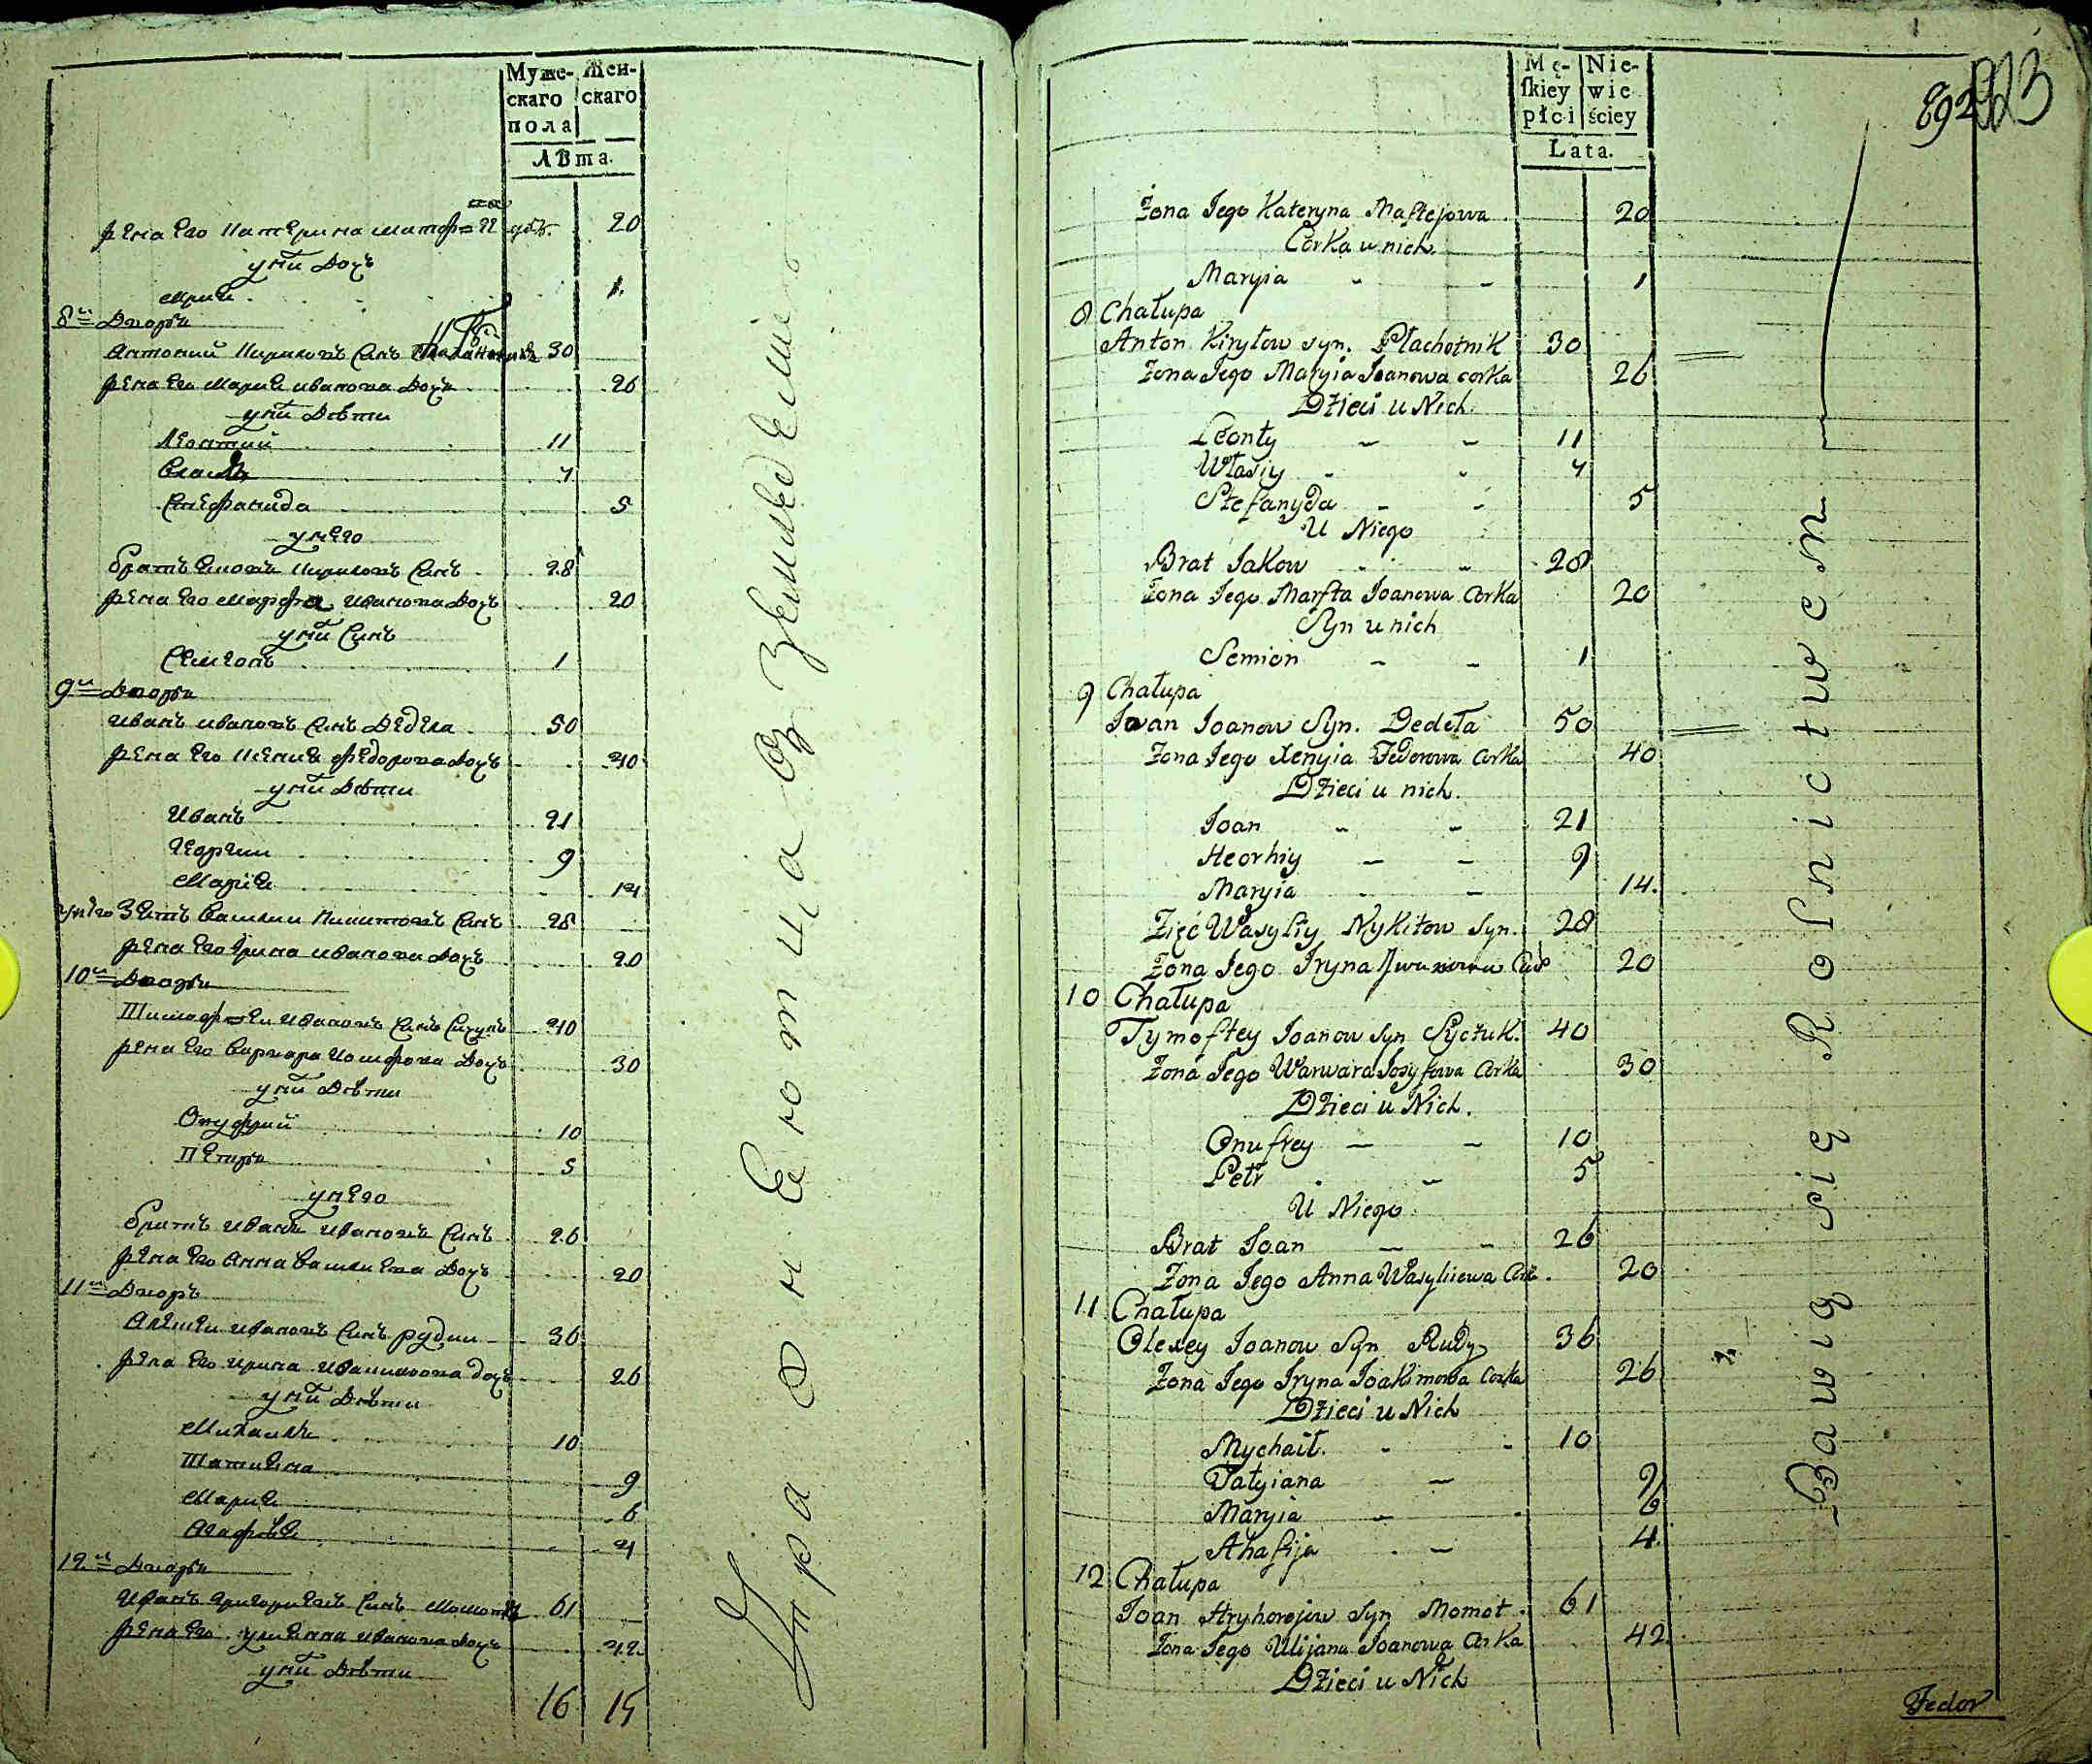 Муже-
скаго
пола
Жен-
скаго
Лѣта.
жена его Катерина 20
у них дочь
Мрия 1
8й Дворъ
Антоний Кириловъ синъ 30
жена его Мария Иванова дочь 26
у них дѣти
Леонтий 11
Власий 7
Стефанида 5
у него
братъ Яковъ Кириловъ синъ 28
жена его Марфа Иванова дочь 20
у них синъ
Семионъ 1
9й Дворъ
Иванъ Ивановъ синъ Дедела 50
жена его Ксения Федорова дочь 40
у них дѣти
Иванъ 21
Георгии 9
Мария 14
у него Зять Василии Никитовъ синъ 28
жена его Ирина Иванова дочь 20
10й Дворъ
Тимофеи Ивановъ синъ 40
жена его Варвара Иосифова дочь 30
у них дѣти
Онуфрий 10
Петръ 5
у него
братъ Иванъ Ивановъ синъ 26
жена его Анна Василиева дочь 20
11й Дворъ
Алексеи Ивановъ синъ рудии 36
жена его Ирина Иоакимова дочь 26
у них дѣти
Михаилъ 10
Татиана 9
Мария 6
Агафия 4
12й Дворъ
Иванъ Григориевъ синъ Момотъ 61
жена его Улиянна Иванова дочь 42
у них дѣти
16 15
Упражняются в земледелии
Mę-
ſkiey
płci
Nie-
wie
ściey
Lata.
892
Żona Jego Kateryna Maftejowa 20
Corka u nich
Maryia 1
8 Chałupa
Anton Kiryłow syn. Płachotnik 30
Żona Jego Maryia Joanowa corka 26
Dzieci u Nich
Leonty 11
Własiy 7
Stefanyda 5
U Niego
Brat Jakow 28
Żona Jego Marfta Joanowa Corka 20
Syn u nich
Semion 1
9 Chałupa
Joan Joanow Syn. Dedeła 50
Żona Jego Xenyia Fedorowa Corka 40
Dzieci u nich.
Joan 21
Heorhiy 9
Maryia 14.
Zięć Wasyliy Nykitow Syn. 28
Żona Jego Iryna Iwanowa Cor 20
10 Chałupa
Tymoftey Joanow Syn Syczuk. 40
Żona Jego Warwara Josyfowa Corka 30
Dzieci u Nich.
Onufrey 10
Petr 5
U Niego
Brat Joan 26
Żona Jego Anna Wasyliewa Cor. 20
11 Chałupa
Olexey Joanow Syn Rudy 36
Żona Jego Iryna Joakimowa Corka 26
Dzieci u Nich
Mychaił. 10
Tatyiana 9
Maryia 6
Ahafija 4.
12 Chałupa
Joan Hryhorejow Syn Momot. 61
Żona Jego Ulijana Joanowa Corka 42.
Dzieci u Nich
Bawią się Rolnictwem
Fedor